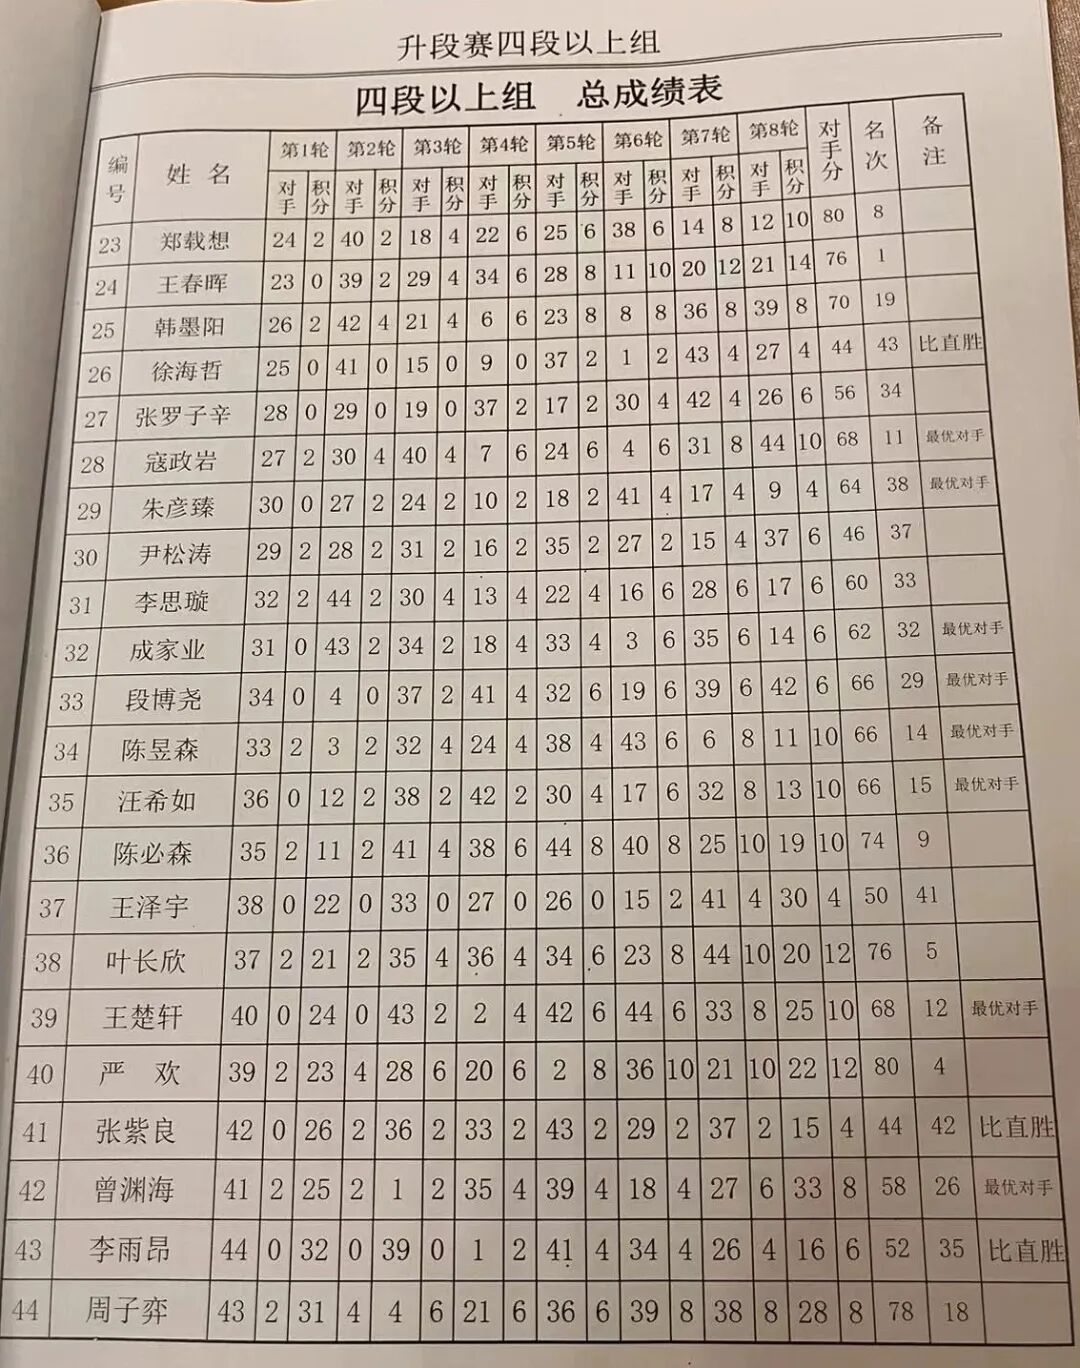 升段赛四段以上组
四段以上组 总成绩表
编号 姓名 第1轮 第2轮 第3轮 第4轮 第5轮 第6轮 第7轮 第8轮 对手分 名次 备注
对手 积分 对手 积分 对手 积分 对手 积分 对手 积分 对手 积分 对手 积分 对手 积分
23 郑载想 24 2 40 2 18 4 22 6 25 6 38 6 14 8 12 10 80 8
24 王春晖 23 0 39 2 29 4 34 6 28 8 11 10 20 12 21 14 76 1
25 韩墨阳 26 2 42 4 21 4 6 6 23 8 8 8 36 8 39 8 70 19
26 徐海哲 25 0 41 0 15 0 9 0 37 2 1 2 43 4 27 4 44 43 比直胜
27 张罗子辛 28 0 29 0 19 0 37 2 17 2 30 4 42 4 26 6 56 34
28 寇政岩 27 2 30 4 40 4 7 6 24 6 4 6 31 8 44 10 68 11 最优对手
29 朱彦臻 30 0 27 2 24 2 10 2 18 2 41 4 17 4 9 4 64 38 最优对手
30 尹松涛 29 2 28 2 31 2 16 2 35 2 27 2 15 4 37 6 46 37
31 李思璇 32 2 44 2 30 4 13 4 22 4 16 6 28 6 17 6 60 33
32 成家业 31 0 43 2 34 2 18 4 33 4 3 6 35 6 14 6 62 32 最优对手
33 段博尧 34 0 4 0 37 2 41 4 32 6 19 6 39 6 42 6 66 29 最优对手
34 陈昱森 33 2 3 2 32 4 24 4 38 4 43 6 6 8 11 10 66 14 最优对手
35 汪希如 36 0 12 2 38 2 42 2 30 4 17 6 32 8 13 10 66 15 最优对手
36 陈必森 35 2 11 2 41 4 38 6 44 8 40 8 25 10 19 10 74 9
37 王泽宇 38 0 22 0 33 0 27 0 26 0 15 2 41 4 30 4 50 41
38 叶长欣 37 2 21 2 35 4 36 4 34 6 23 8 44 10 20 12 76 5
39 王楚轩 40 0 24 0 43 2 2 4 42 6 44 6 33 8 25 10 68 12 最优对手
40 严欢 39 2 23 4 28 6 20 6 2 8 36 10 21 10 22 12 80 4
41 张紫良 42 0 26 2 36 2 33 2 43 2 29 2 37 2 15 4 44 42 比直胜
42 曾渊海 41 2 25 2 1 2 35 4 39 4 18 4 27 6 33 8 58 26 最优对手
43 李雨昂 44 0 32 0 39 0 1 2 41 4 34 4 26 4 16 6 52 35 比直胜
44 周子弈 43 2 31 4 4 6 21 6 36 6 39 8 38 8 28 8 78 18